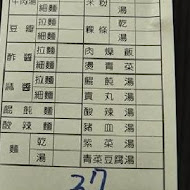 牛肉湯 細麵
豆瓣 拉麵 細麵
酢醬 拉麵 細麵
麻醬 拉麵 細麵
餛飩麵
酸辣麵
麵 乾 湯
米粉 湯
粿條 乾 湯
肉燥飯
燙青菜
餛飩湯
貢丸湯
酸辣湯
豬血湯
紫菜湯
青菜豆腐湯
27